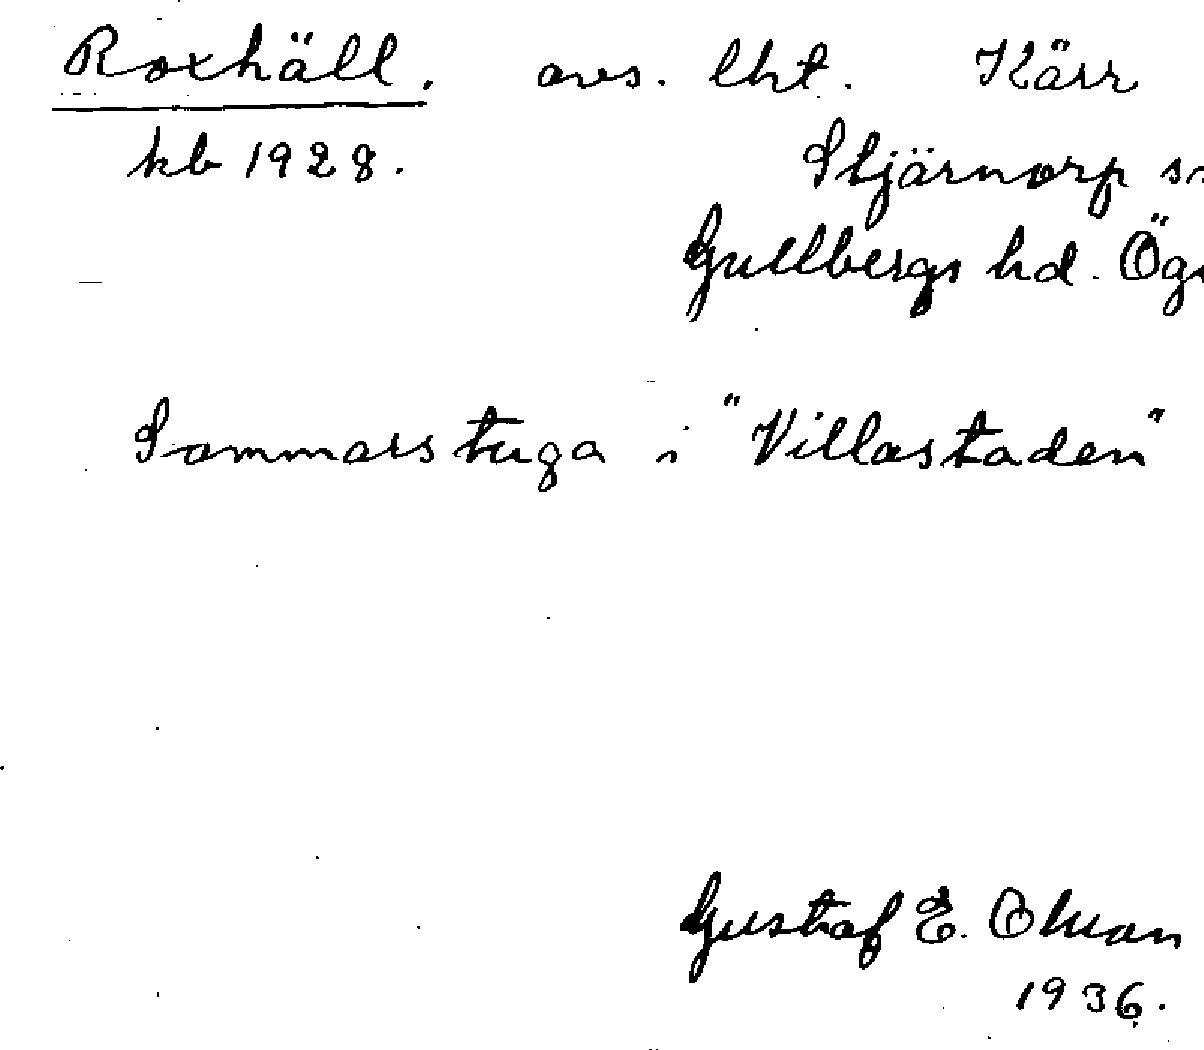 Roxhäll. avs. lht. Kärr
kb 1928. Stjärnorp sn
Gullbergs hd. Ög
Sommarstuga i "Villastaden"
Gustaf E.
1936.